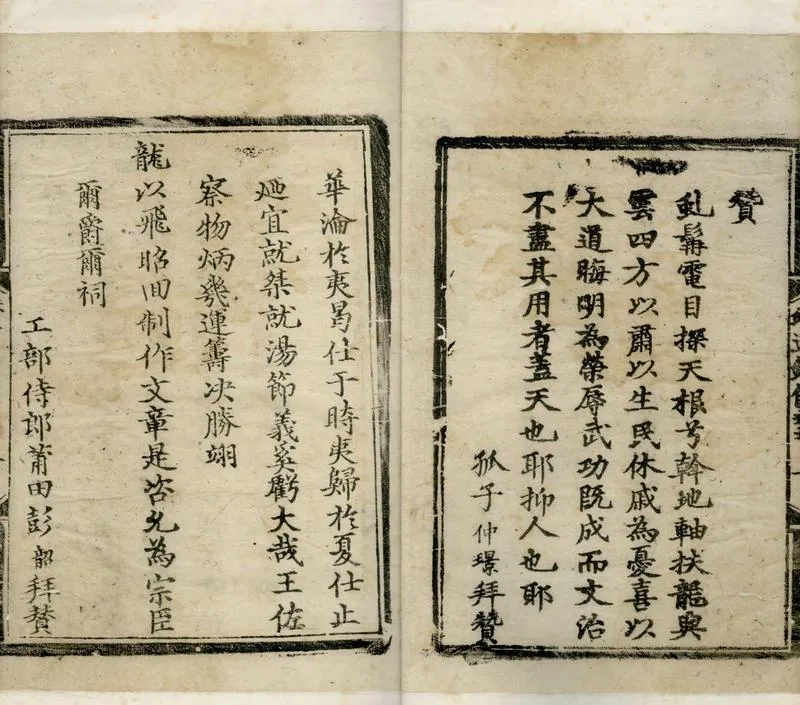 贊
虬髯電目探天根兮斡地軸扶龍興
雲四方以肅以生民休戚為憂喜以
大道晦明為榮辱武功既成而文治
不盡其用者蓋天也耶抑人也耶
孤子仲璟拜贊
華淪於夷曷仕于時夷歸於夏仕止
廼宜就桀就湯節義奚虧大哉王佐
察物炳幾運籌决勝翊
龍以飛昭回制作文章是咨允為宗臣
爾爵爾祠
工部侍郎莆田彭韶拜賛